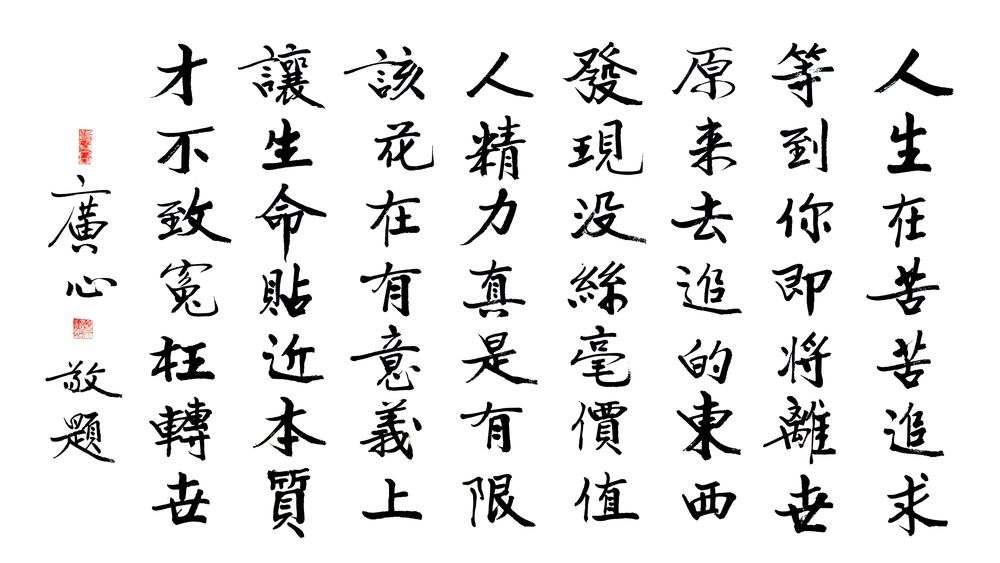 人生在苦苦追求
等到你即将離世
原来去追的東西
發現没絲毫價值
人精力真是有限
該花在有意義上
讓生命貼近本質
才不致冤枉轉世
廣心
敬題